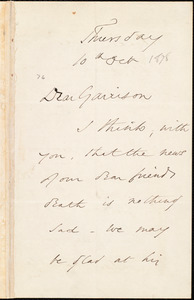 Thursday
10th Oct 1878
Dear Garrison
I think, with
you, that the news
of our dear friend's
death is nothing
sad - we may
be glad at his